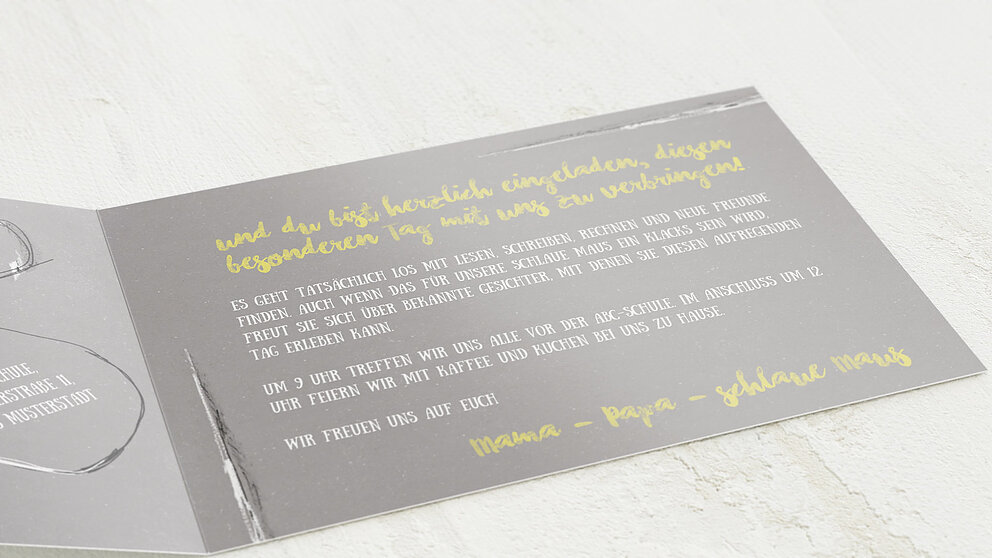 und du bist herzlich eingeladen, diesen
besonderen Tag mit uns zu verbringen!
ES GEHT TATSÄCHLICH LOS MIT LESEN, SCHREIBEN, RECHNEN UND NEUE FREUNDE
FINDEN. AUCH WENN DAS FÜR UNSERE SCHLAUE MAUS EIN KLACKS SEIN WIRD,
FREUT SIE SICH ÜBER BEKANNTE GESICHTER, MIT DENEN SIE DIESEN AUFREGENDEN
TAG ERLEBEN KANN.
UM 9 UHR TREFFEN WIR UNS ALLE VOR DER ABC-SCHULE. IM ANSCHLUSS UM 12
UHR FEIERN WIR MIT KAFFEE UND KUCHEN BEI UNS ZU HAUSE.
WIR FREUEN UNS AUF EUCH
Mama - Papa - schlaue Maus
11,
MUSTERSTADT